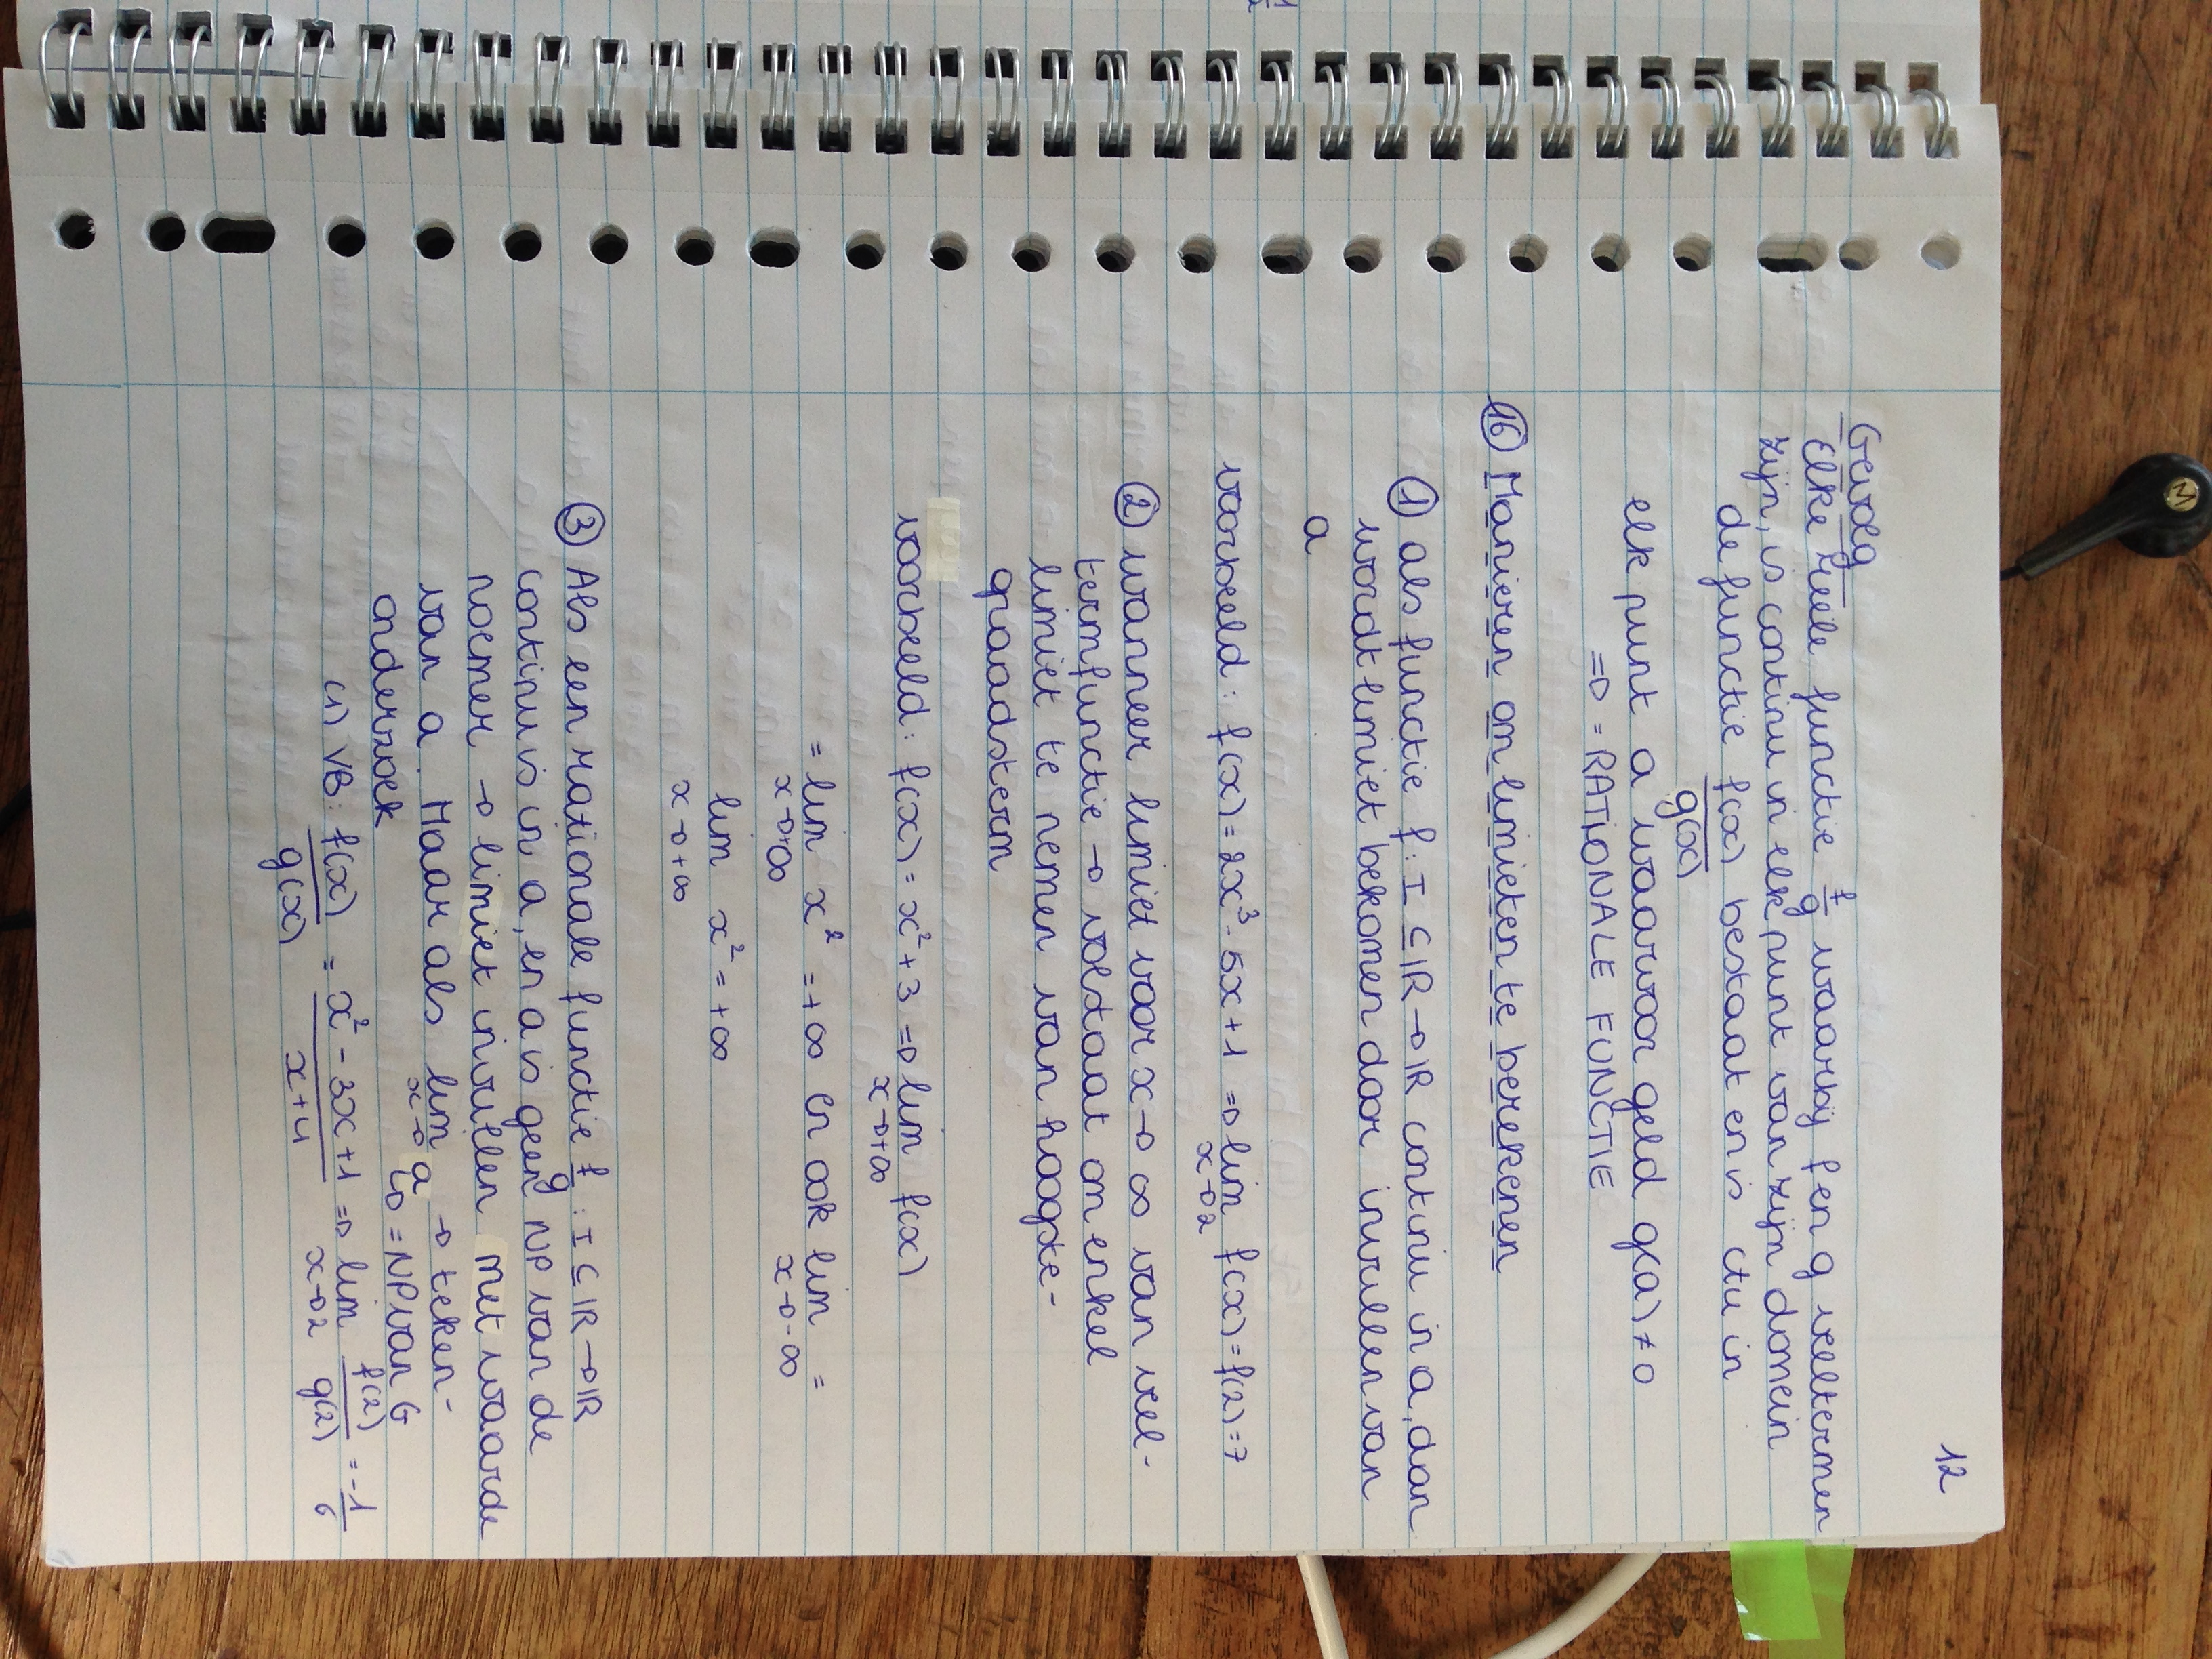 M
12
Gevolg
Elke reële functie f/g waarbij f en g veeltermen
zijn, is continu in elk punt van zijn domein
de functie f(x)/g(x) bestaat en is ctu in
elk punt a waarvoor geld g(a) ≠ 0
=> = RATIONALE FUNCTIE
⑯ Manieren om limieten te berekenen
① als functie f: I ⊆ IR → IR continu in a, dan
wordt limiet bekomen door invullen van
a
voorbeeld: f(x) = 2x³ - 5x + 1 => lim x→2 f(x) = f(2) = 7
② wanneer limiet voor x → ∞ van veel-
termfunctie → volstaat om enkel
limiet te nemen van hoogste-
graadsterm
voorbeeld: f(x) = x² + 3 => lim x→+∞ f(x)
= lim x→+∞ x² = +∞ en ook lim x→-∞ =
lim x→+∞ x² = +∞
③ Als een rationale functie f/g : I ⊆ IR → IR
continu is in a, en a is geen NP van de
noemer → limiet invullen met waarde
van a. Maar als lim x→a → teken-
onderzoek ↳ = NP van G
(1) VB: f(x)/g(x) = x² - 3x + 1 / x + 4 => lim x→2 f(2)/g(2) = -1/6